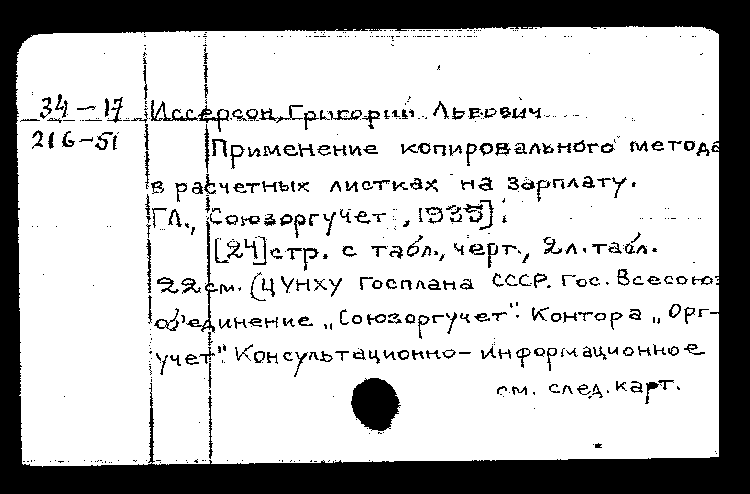 34-17 Иссерсон, Григорий Львович
216-51
Применение копировального метода
в расчетных листках на зарплату.
[Л., Союзоргучет, 1935].
[24] стр. с табл., черт., 2 л. табл.
22 см. (ЦУНХУ Госплана СССР. Гос. Всесоюз
объединение „Союзоргучет". Контора „Орг-
учет". Консультационно-информационное
см. след. карт.